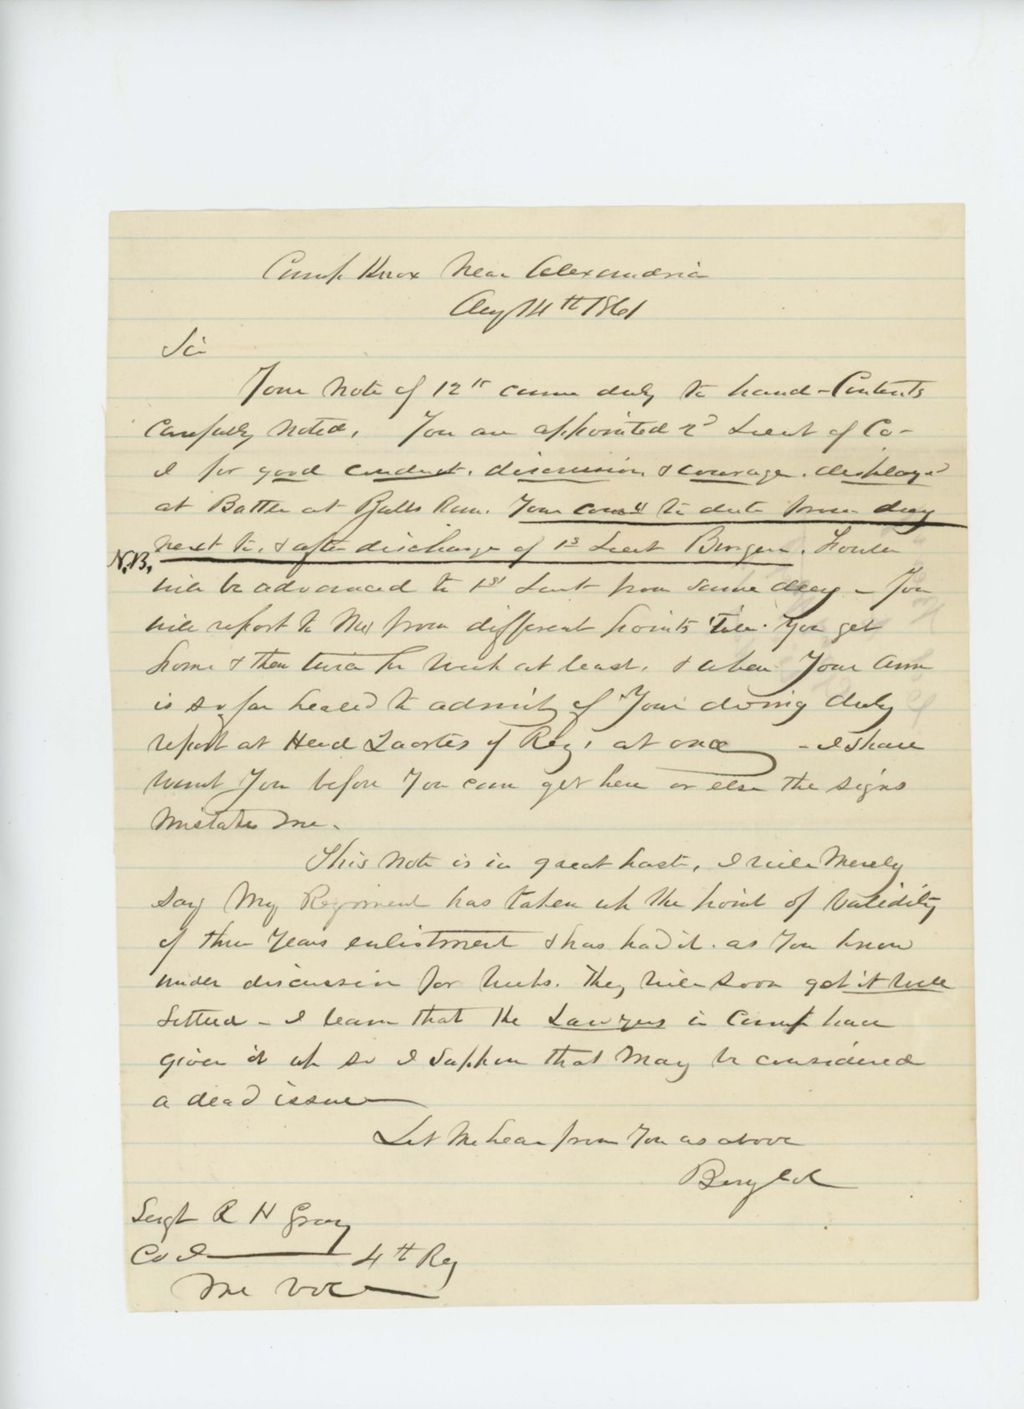 Camp Knox Near Alexandria
Aug 14th 1861
Sir
Your Note of 12th came duly to hand - Contents
Carefully Noted, You are appointed 2d Lieut of Co-
I for good conduct, discression & courage displayed
at Battle at Bulls Run. Your comn to date from day
next to, & after discharge of 1st Lieut Burgen. Fowler
N.B.
will be advanced to 1st Lieut from same day - You
will report to Me from different points 'till you get
home & then twice per Week at least, & when Your Arm
is so far healed to admit of Your doing duty
report at Head Quarters of Reg, at once - I shall
want You before You can get here or else the signs
Mistake me.
This Note is in great haste, I will Merely
say My Regiment has taken up the point of validity
of three Years enlistment & has had it as You know
under discussion for Weeks. They will soon get it well
Settled - I learn that the Lawyers in Camp have
given it up so I suppose that May be considered
a dead issue
Let Me hear from You as above
Berry Col
Sergt R H Gray
Co I 4th Reg
Me Vol